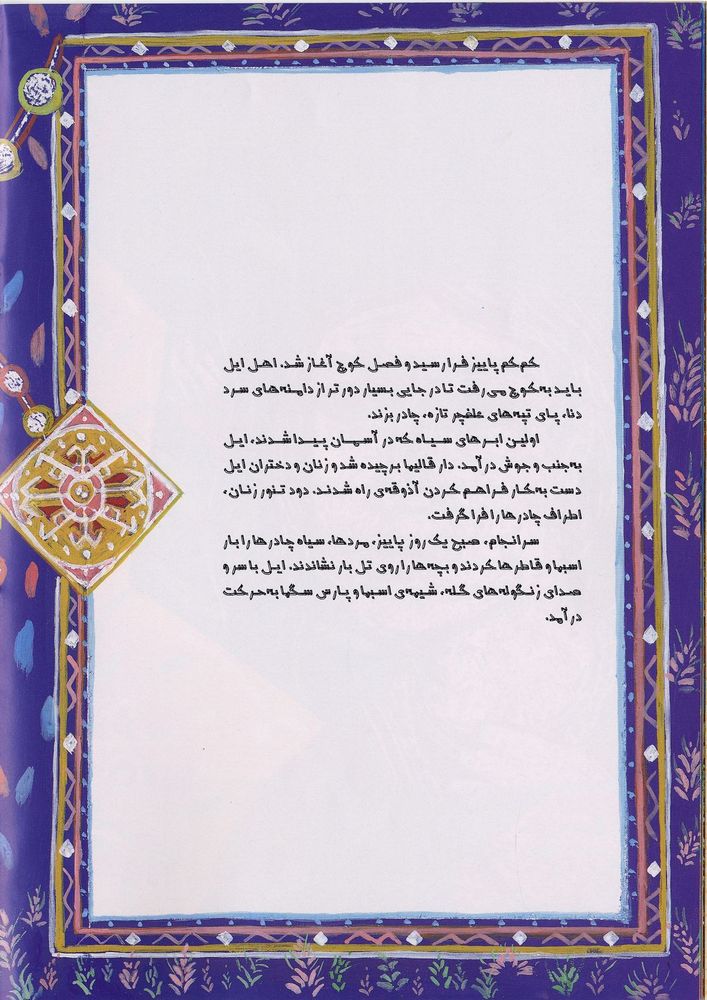 کم‌کم پاییز فرا رسید و فصل کوچ آغاز شد. اهل ایل
باید به کوچ می‌رفت تا در جایی بسیار دورتر از دامنه‌های سرد
دنا، پای تپه‌های علفچر تازه، چادر بزند.
اولین ابرهای سیاه که در آسمان پیدا شدند، ایل
به جنب و جوش درآمد. دار قالیها برچیده شد و زنان و دختران ایل
دست به کار فراهم کردن آذوقه‌ی راه شدند. دود تنور زنان،
اطراف چادرها را فرا گرفت.
سرانجام، صبح یک روز پاییز، مردها، سیاه چادرها را بار
اسبها و قاطرها کردند و بچه‌ها را روی تل بار نشاندند. ایل با سر و
صدای زنگوله‌های گله، شیهه‌ی اسبها و پارس سگها به حرکت
درآمد.